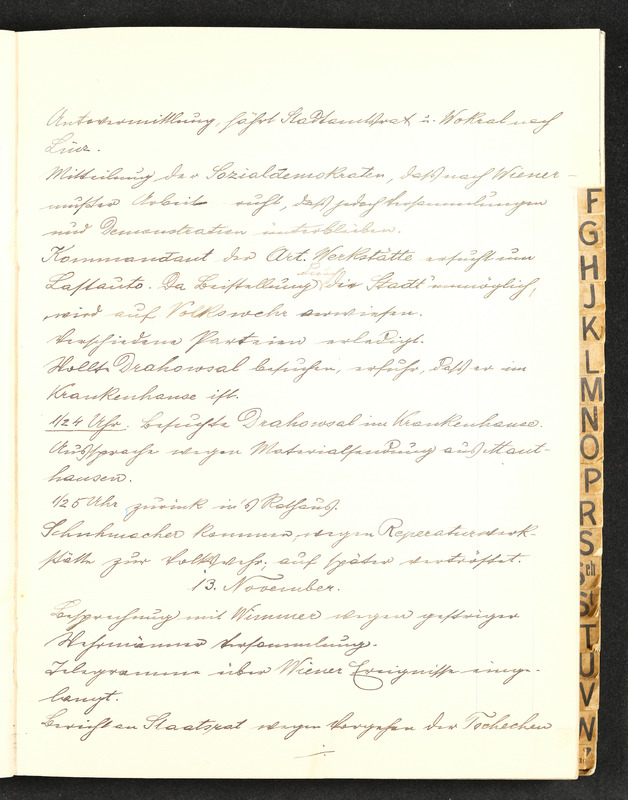 Autovermittlung, fährt Stadtamtsrat u. Wokral nach
Linz.
Mitteilung der Sozialdemokraten, daß nach Wiener-
muster Arbeit ruht, daß jedoch Versammlungen
und Demonstration unterblieben.
Kommandant der Art. Werkstätte ersucht um
Lastauto. Da Beistellung durch die Stadt unmöglich,
wird auf Volkswehr verwiesen.
Verschiedene Parteien erledigt.
Wollte Drahowsal besuchen, erfuhr, daß er im
Krankenhause ist.
1/24 Uhr. Besuchte Drahowsal im Krankenhause.
Aussprache wegen Materialsendung aus Maut-
hausen.
1/25 Uhr zurück in's Rathaus.
Schuhmacher kommen wegen Reperaturwerk-
stätte zur Volkswehr. auf später vertröstet.
13. November.
Besprechung mit Wimmer wegen gestriger
Wehrmänner Versammlung.
Telegramme über Wiener Ereignisse einge-
langt.
Bericht an Staatsrat wegen Vorgehen der Tschechen
F
G
H
J
K
L
M
N
O
P
R
S
Sch
St
T
U
V
W